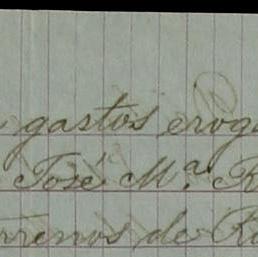 gastos eroga
José M.ª R
rrenos de Ra